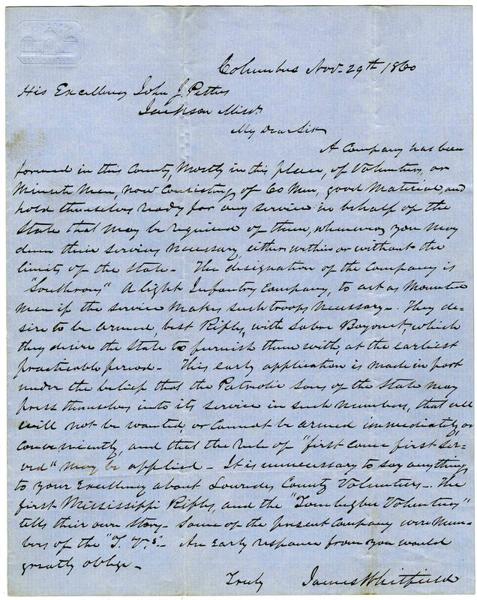 Columbus Nov. 29th 1860
His Excellency John J. Pettus
Jackson Miss.
My Dear Sir
A Company has been
formed in this County, Mostly in this place, of Volunteers, or
Minute Men, now Consisting of 60 Men, good Material, and
hold themselves ready for any service in behalf of the
State that may be required of them, whenever you may
deem their services necessary, either within or without the
limits of the State - The designation of the Company is
"Southrons" A light Infantry Company, to act as Mounted
men if the service makes such troops necessary - They de-
sire to be armed, best Rifles, with Sabre Bayonet, which
they desire the State to furnish them with, at the earliest
practicable period - This early application is made in part
under the belief that the Patriotic sons of the State may
press themselves into its service in such numbers, that all
will not be wanted, or Cannot be armed immediately, or
Conveniently, and that the rule of "first Come first Ser-
ved" may be applied - It is unnecessary to say anything
to your Excellency about Lowndes County Volunteers - The
first Mississippi Rifles, and the "Tombigbee Volunteers"
tells their own story - Some of the present Company were Mem-
bers of the "T. V.s" - An Early response from you would
greatly oblige -
Truly James Whitfield